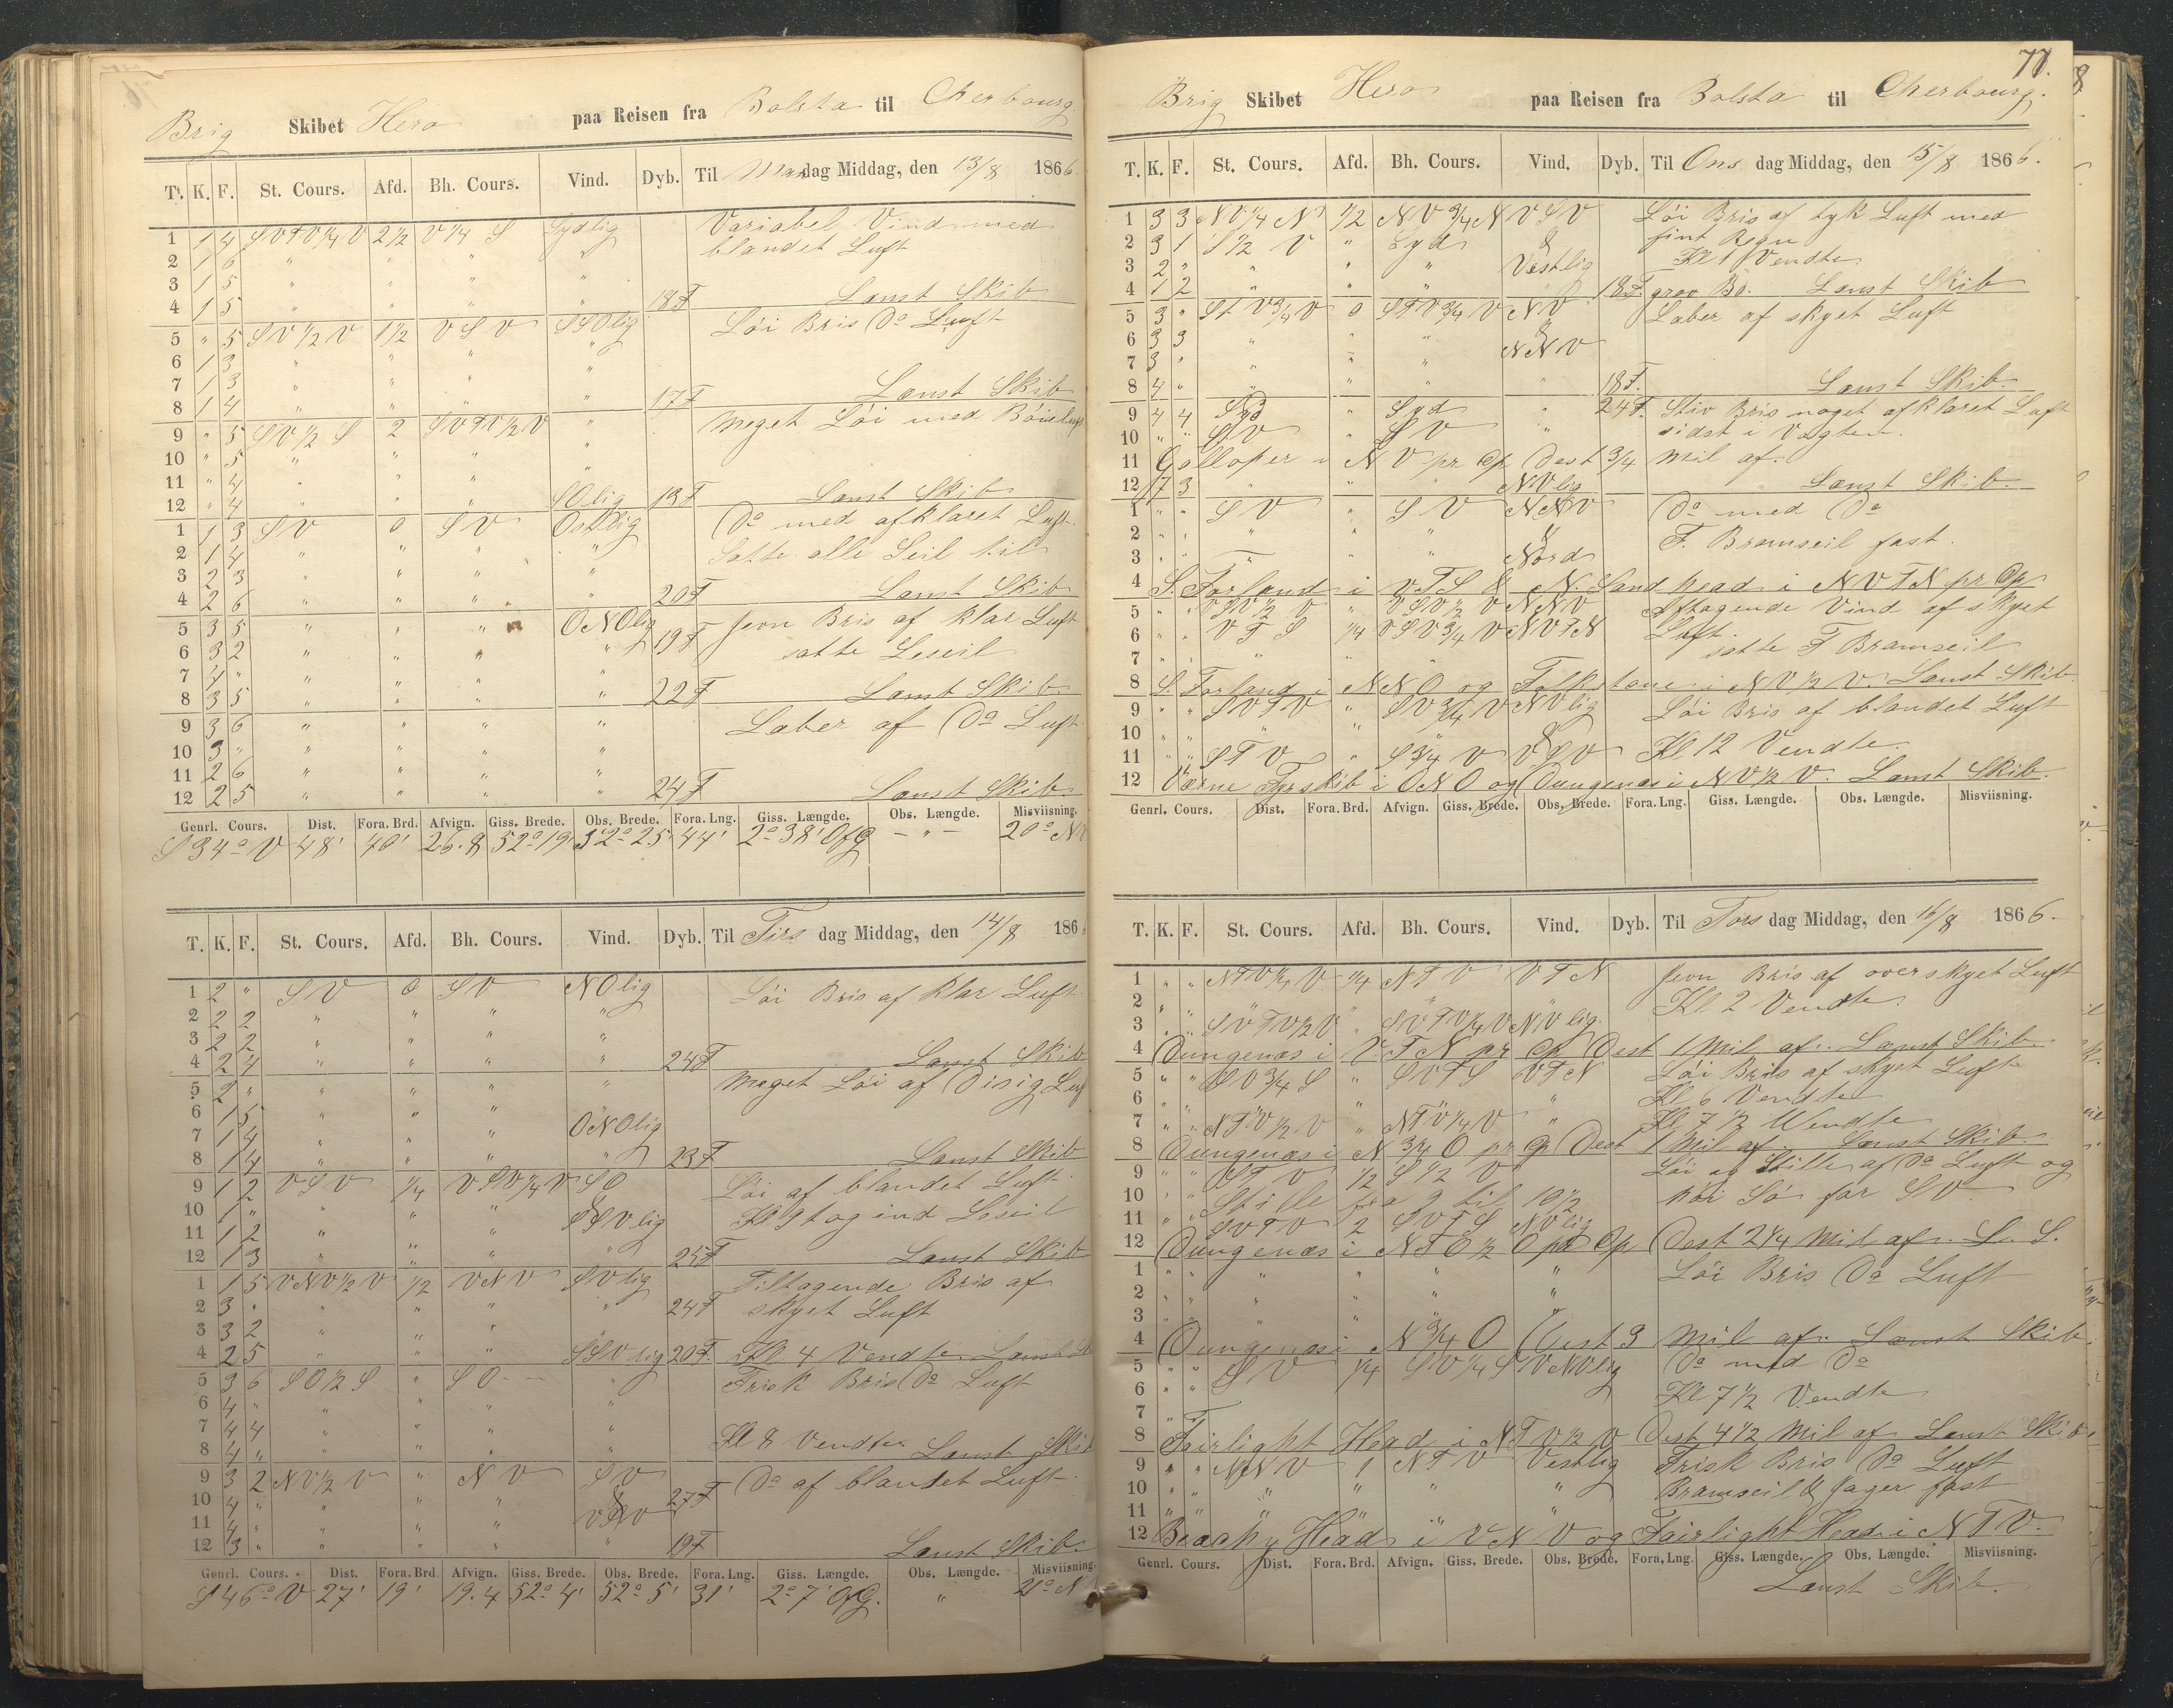 Brig Skibet Hero paa Reisen fra Bolsta til Cherbourg
T. K. F. St. Cours. Afd. Bh. Cours. Vind. Dyb. Til Man dag Middag, den 13/8 1866
1 1 4 SVTV 1/4 V 2 1/2 V 1/4 S Sydlig Variabel Vind med
2 1 6 " " " " blandet Luft
3 1 5 " " " "
4 1 5 " " " " 18 F Lænst Skib
5 " 5 SV 1/2 V 1 1/2 VSV SSOlig Löi Bris Do Luft
6 1 3 " " " "
7 1 3 " " " "
8 1 4 " " " " 17 F Lænst Skib
9 " 5 SV 1/2 S 2 SVTV 1/2 V " Meget Löi med
10 " 5 " " " "
11 " 4 " " " "
12 " 4 " " " SOlig 13 F Lænst Skib
1 1 3 SV 0 SV Ostlig Do med afklaret Luft
2 1 4 " " " " Satte alle Seil til
3 2 3 " " " "
4 2 6 " " " " 20 F Lænst Skib
5 3 5 " " " ONOlig Jevn Bris af klar Luft
6 3 2 " " " " 19 F satte Leseil
7 4 " " " " "
8 3 5 " " " " 22 F Lænst Skib
9 3 6 " " " " Laber af Do Luft
10 3 " " " " "
11 2 6 " " " "
12 2 5 " " " " 24 F Lænst Skib
Genrl. Cours. Dist. Fora. Brd. Afvign. Giss. Brede. Obs. Brede. Fora. Lng. Giss. Længde. Obs. Længde. Misviisning.
S 34° V 48' 40' 26.8 52° 19' 52° 25' 44' 2° 38' OfG — " — 20° NV
T. K. F. St. Cours. Afd. Bh. Cours. Vind. Dyb. Til Tirs dag Middag, den 14/8 186
1 2 " SV 0 SV NOlig Löi Bris af klar Luft
2 2 2 " " " "
3 2 2 " " " "
4 2 4 " " " " 24 F Lænst Skib
5 2 " " " " " Meget Löi af Disig Luf
6 1 5 " " " "
7 1 4 " " " ONOlig
8 1 4 " " " " 23 F Lænst Skib
9 1 2 VSV 1/4 VSV 1/4 V SO Löi af blandet Luft
10 1 " " " " & Kl 9 tog ind Leseil
11 1 2 " " " SSVlig
12 1 3 " " " " 25 F Lænst Skib
1 1 5 VNV 1/2 V 1/2 VNV SVlig Tiltagende Bris af
2 3 " " " " " 24 F skyet Luft
3 3 2 " " "
4 2 5 " " " SSVlig 20 F. Kl 4 Vendte Lænst
5 3 6 SO 1/2 S " SO " Frisk Bris Do Luft
6 4 " " " " "
7 4 4 " " " "
8 4 " " " " " Kl 8 Vendte Lænst Skib
9 3 2 NV 1/2 V " NV SV Do af blandet Luft
10 4 " " " " & 27 F
11 4 " " " " VSV
12 3 " " " " " 19 F Lænst Skib
Genrl. Cours. Dist. Fora. Brd. Afvign. Giss. Brede. Obs. Brede. Fora. Lng. Giss. Længde. Obs. Længde. Misviisning.
S 46° V 27' 19' 19.4 52° 4' 52° 5' 31' 2° 7' OfG. " 21° N
77.
Brig Skibet Hero paa Reisen fra Bolsta til Cherbourg.
T. K. F. St. Cours. Afd. Bh. Cours. Vind. Dyb. Til Ons dag Middag, den 15/8 1866.
1 3 3 NV 1/4 N 1/2 NV 3/4 N VSV Löi Bris af tyk Luft med
2 3 1 S 1/2 V " Syd & fint Regn
3 2 " " " " Vestlig Kl 1 Vendte
4 1 2 " " " " 18 F. grov Lænst Skib
5 3 " STV 3/4 V 0 STV 3/4 V NV Laber af skyet Luft
6 3 3 " " " &
7 3 " " " " NNV
8 4 " " " " " 18 F. Lænst Skib
9 4 4 Syd Syd " 24 F. Stiv Bris noget afklaret Luft
10 " " SV " SV " sidst i Vagten.
11 Galloper i NV pr Cp Dest 3/4 Mil af.
12 7 3 " " " NVlig Lænst Skib
1 " " SV " SV NNV Do med Do
2 " " " " " & F. Bramseil fast.
3 " " " " " Nord
4 S. Forland i VTS & N. Sand head i NVTN pr Cp
5 " " VSV 1/2 V " VSV 1/2 V NNV Aftagende Vind af skyet
6 " " VTS 1/4 VSV 3/4 V NVTN Luft.
7 " " " " " satte F Bramseil
8 S. Forland i NNO og Folkstone i NV 1/2 V. Lænst Skib
9 " " SVTV " SV 3/4 V NVlig Löi Bris af blandet Luft
10 " " " " " &
11 " " STV " S 3/4 V VSV Kl 12 Vendte
12 Varne Fyrskib i ONO og Dungenæs i NV 1/2 V. Lænst Skib.
Genrl. Cours. Dist. Fora. Brd. Afvign. Giss. Brede. Obs. Brede. Fora. Lng. Giss. Længde. Obs. Længde. Misviisning.
T. K. F. St. Cours. Afd. Bh. Cours. Vind. Dyb. Til Tors dag Middag, den 16/8 1866.
1 " " NTV 1/4 V 1/4 NTV VTN Jevn Bris af overskyet Luft
2 " " " " " " Kl 2 Vendte
3 " " SVTV 1/2 V " SVTV 1/4 V NVlig
4 Dungenæs i VTN pr Cp Dest 1 Mil af. Lænst Skib
5 " " SV 3/4 S " SVTS VTN Löi Bris af skyet Luft
6 " " " " " " Kl 6 Vendte
7 " " NTV 1/2 V " NTV 1/4 V " Kl 7 1/2 Wendte
8 Dungenæs i N 3/4 O pr Cp Dest 1 Mil af. Lænst Skib
9 " " STV 1/2 S 1/2 V Löi og Stille af Do Luft og
10 " " Stille fra 9 til 10 1/2 Söi Sö far SV
11 " " SVTV 2 SVTS NVlig
12 Dungenæs i NTO 1/2 O pr Cp Dest 2 1/4 Mil af. L. S.
1 " " " " " " Löi Bris Do Luft
2 " " " " " "
3 " " " " " "
4 Dungenæs i N 3/4 O Dest 3 Mil af. Lænst Skib
5 " " SV 1/4 SV 1/4 S VNVlig Do med Do
6 " " Kl 7 1/2 Vendte
7 " "
8 Fairlight Head i NTV 1/2 V Dest 4 1/2 Mil af Lænst Skib
9 " " NNV 1 NTV Vestlig Frisk Bris Do Luft
10 " " " " " " Bramseil & Jager fast
11 " " " " " "
12 Beachy Head i VNV og Fairlight Head i NTV.
Genrl. Cours. Dist. Fora. Brd. Afvign. Giss. Brede. Obs. Brede. Fora. Lng. Giss. Længde. Obs. Længde. Misviisning.
Lænst Skib.